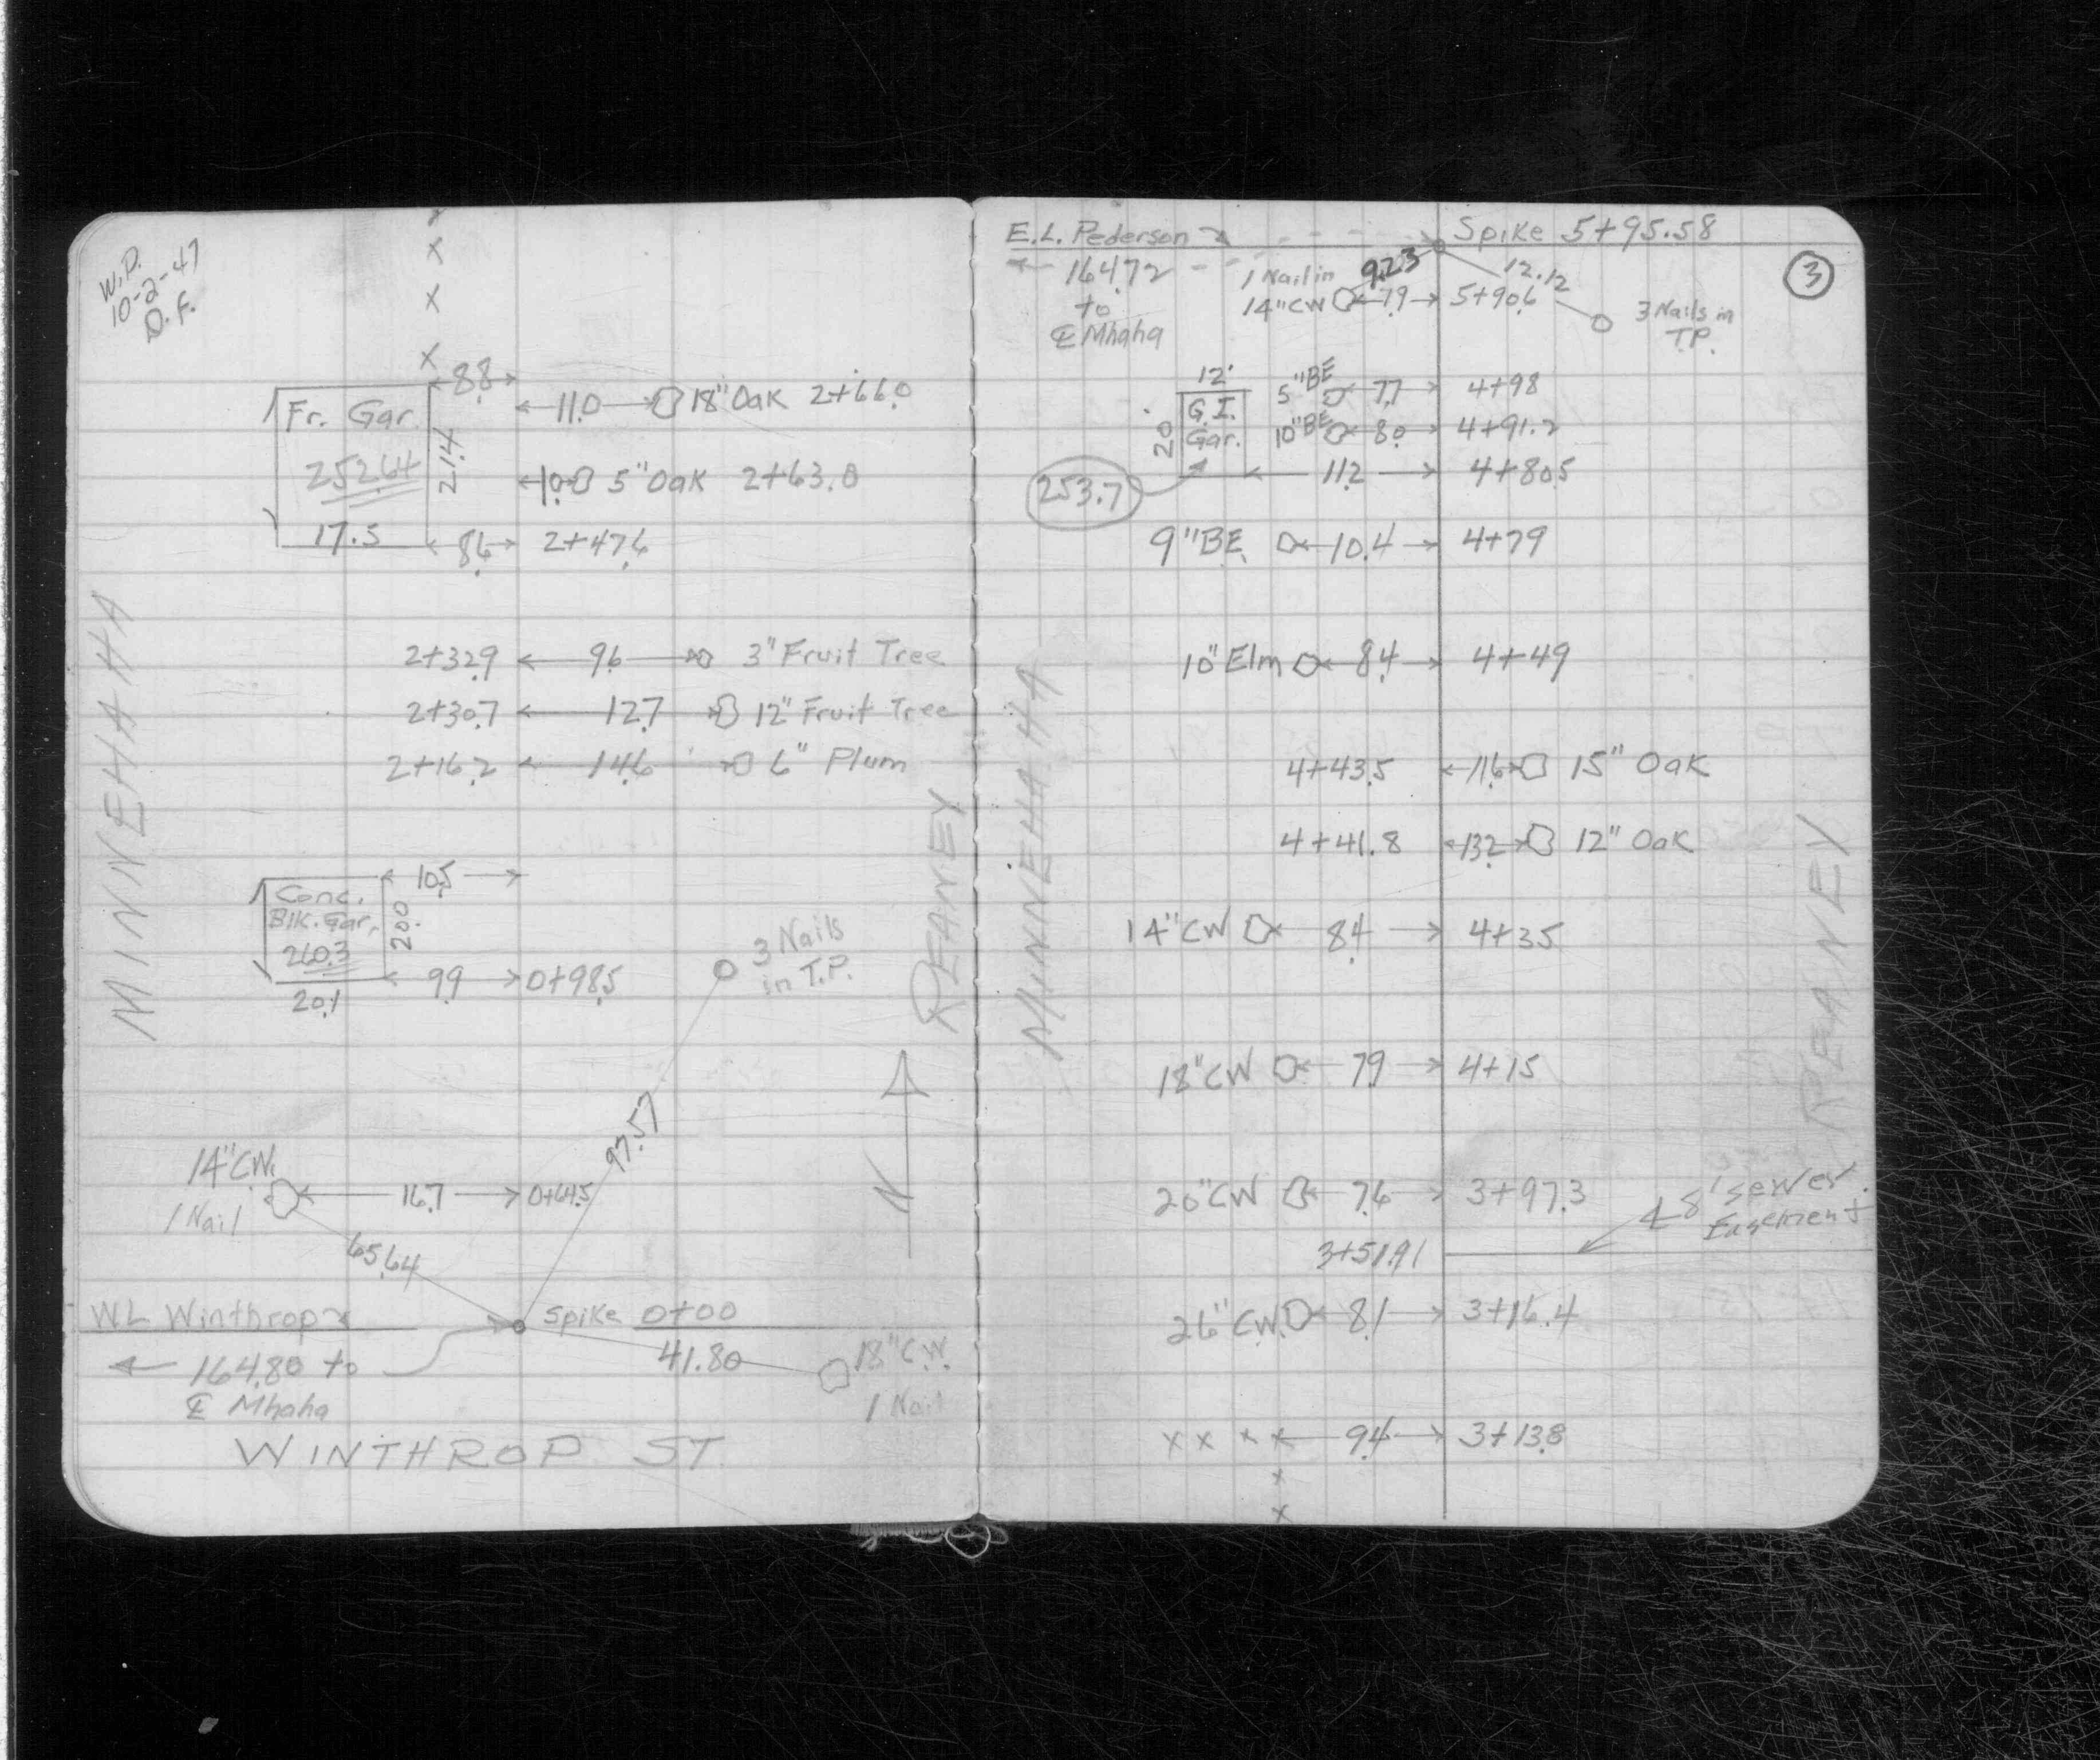 W.P.
10-2-47
D.F.
8.8
11.0 18" Oak 2+66.0
Fr. Gar.
252.64
21.4
17.5
10 5" Oak 2+63.0
8.6 2+47.6
MINNEHAHA
2+32.9 9.6 3" Fruit Tree
2+30.7 12.7 12" Fruit Tree
2+16.2 14.6 6" Plum
REANEY
10.5
Conc.
Blk. Gar.
260.3
20.0
20.1
9.9 0+98.5
3 Nails
in T.P.
97.57
N
14" CW.
1 Nail
16.7 0+64.5
65.64
WL Winthrop
Spike 0+00
164.80 to
℄ Mhaha
41.80
18" C.W.
1 Nail
WINTHROP ST.
E.L. Pederson
Spike 5+95.58
3
16472
to
℄ Mhaha
1 Nail in
14" CW 7.9 5+90.6
9.23
12.12
3 Nails in
T.P.
12'
20
G.I.
Gar.
253.7
5" BE 7.7 4+98
10" BE 8.0 4+91.2
11.2 4+80.5
9" BE 10.4 4+79
10" Elm 8.4 4+49
MINNEHAHA
4+43.5 11.6 15" Oak
4+41.8 13.2 12" Oak
REANEY
14" CW 8.4 4+35
18" CW 7.9 4+15
20" CW 7.6 3+97.3
8' Sewer
Easement
3+51.91
26" CW. 8.1 3+16.4
x x x x 9.4 3+13.8